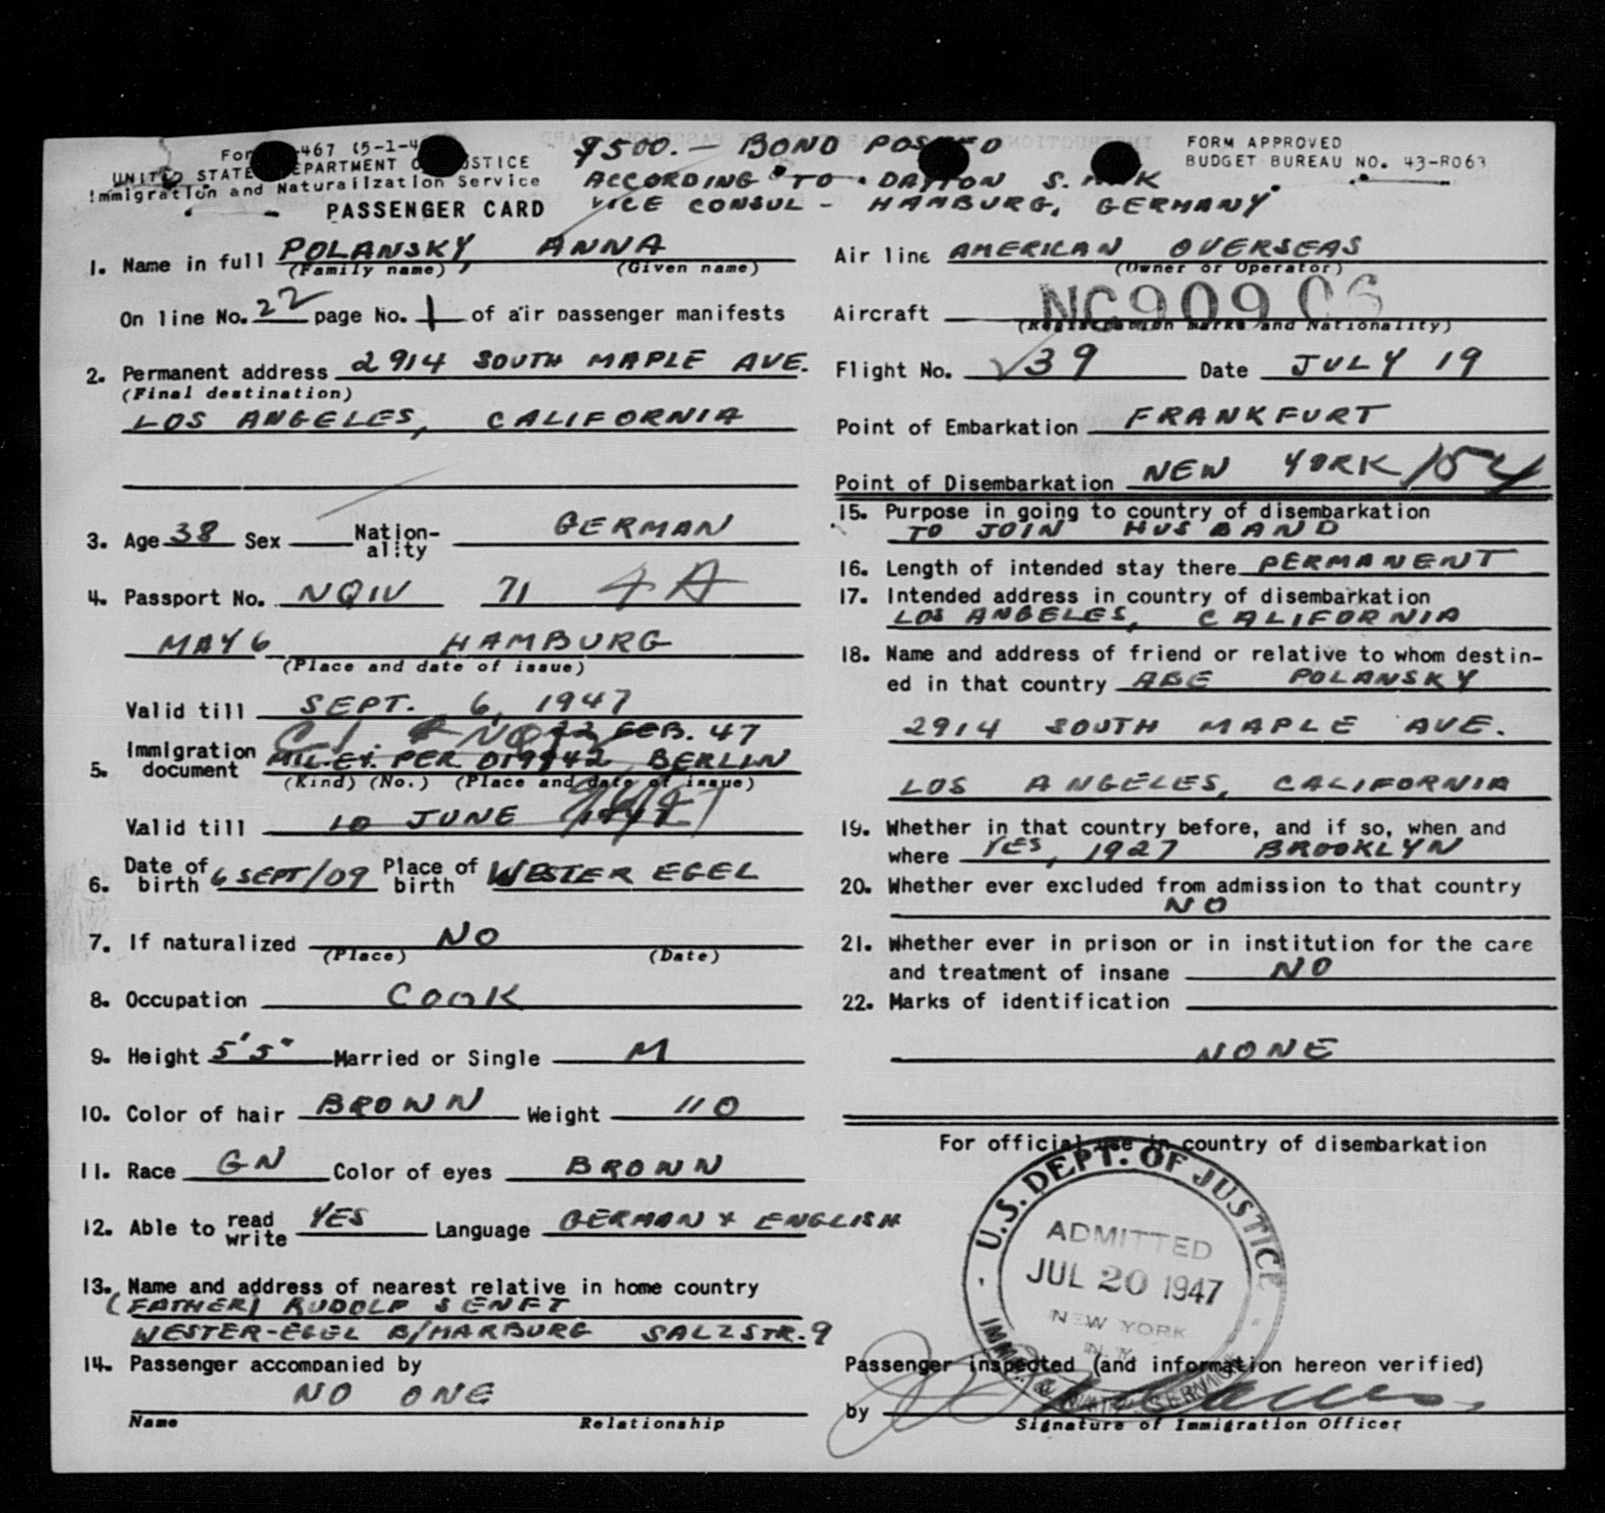 467 (5-1-4
UNITED STATE EPARTMENT O STICE
Immigration and Naturalization Service
PASSENGER CARD
$500.- BOND POS D
ACCORDING TO DAYTON S.
VICE CONSUL - HAMBURG, GERMANY
FORM APPROVED
BUDGET BUREAU NO. 43-R063
1. Name in full POLANSKY, ANNA
(Family name) (Given name)
On line No. 22 page No. 1 of air passenger manifests
2. Permanent address 2914 SOUTH MAPLE AVE.
(Final destination)
LOS ANGELES, CALIFORNIA
3. Age 38 Sex Nation-ality GERMAN
4. Passport No. NQIV 71 4A
MAY 6 HAMBURG
(Place and date of issue)
Valid till SEPT. 6, 1947
22 FEB. 47
5. Immigration document MIL. EX. PER. 019942 BERLIN
(Kind) (No.) (Place and date of issue)
Valid till 10 JUNE 1947
6. Date of birth 6 SEPT/09 Place of birth WESTER EGEL
7. If naturalized NO
(Place) (Date)
8. Occupation COOK
9. Height 5'5" Married or Single M
10. Color of hair BROWN Weight 110
11. Race GN Color of eyes BROWN
12. Able to read write YES Language GERMAN + ENGLISH
13. Name and address of nearest relative in home country
(FATHER) RUDOLF SENFT
WESTER-EGEL B/MARBURG SALZSTR. 9
14. Passenger accompanied by
NO ONE
Name Relationship
Air line AMERICAN OVERSEAS
(Owner or Operator)
Aircraft NC90906
(Registration marks and Nationality)
Flight No. √39 Date JULY 19
Point of Embarkation FRANKFURT
Point of Disembarkation NEW YORK /54
15. Purpose in going to country of disembarkation
TO JOIN HUSBAND
16. Length of intended stay there PERMANENT
17. Intended address in country of disembarkation
LOS ANGELES, CALIFORNIA
18. Name and address of friend or relative to whom destin-
ed in that country ABE POLANSKY
2914 SOUTH MAPLE AVE.
LOS ANGELES, CALIFORNIA
19. Whether in that country before, and if so, when and
where YES, 1927 BROOKLYN
20. Whether ever excluded from admission to that country
NO
21. Whether ever in prison or in institution for the care
and treatment of insane NO
22. Marks of identification
NONE
For official use in country of disembarkation
U.S. DEPT. OF JUSTICE
ADMITTED
JUL 20 1947
NEW YORK
N.Y.
Passenger inspected (and information hereon verified)
by
Signature of Immigration Officer